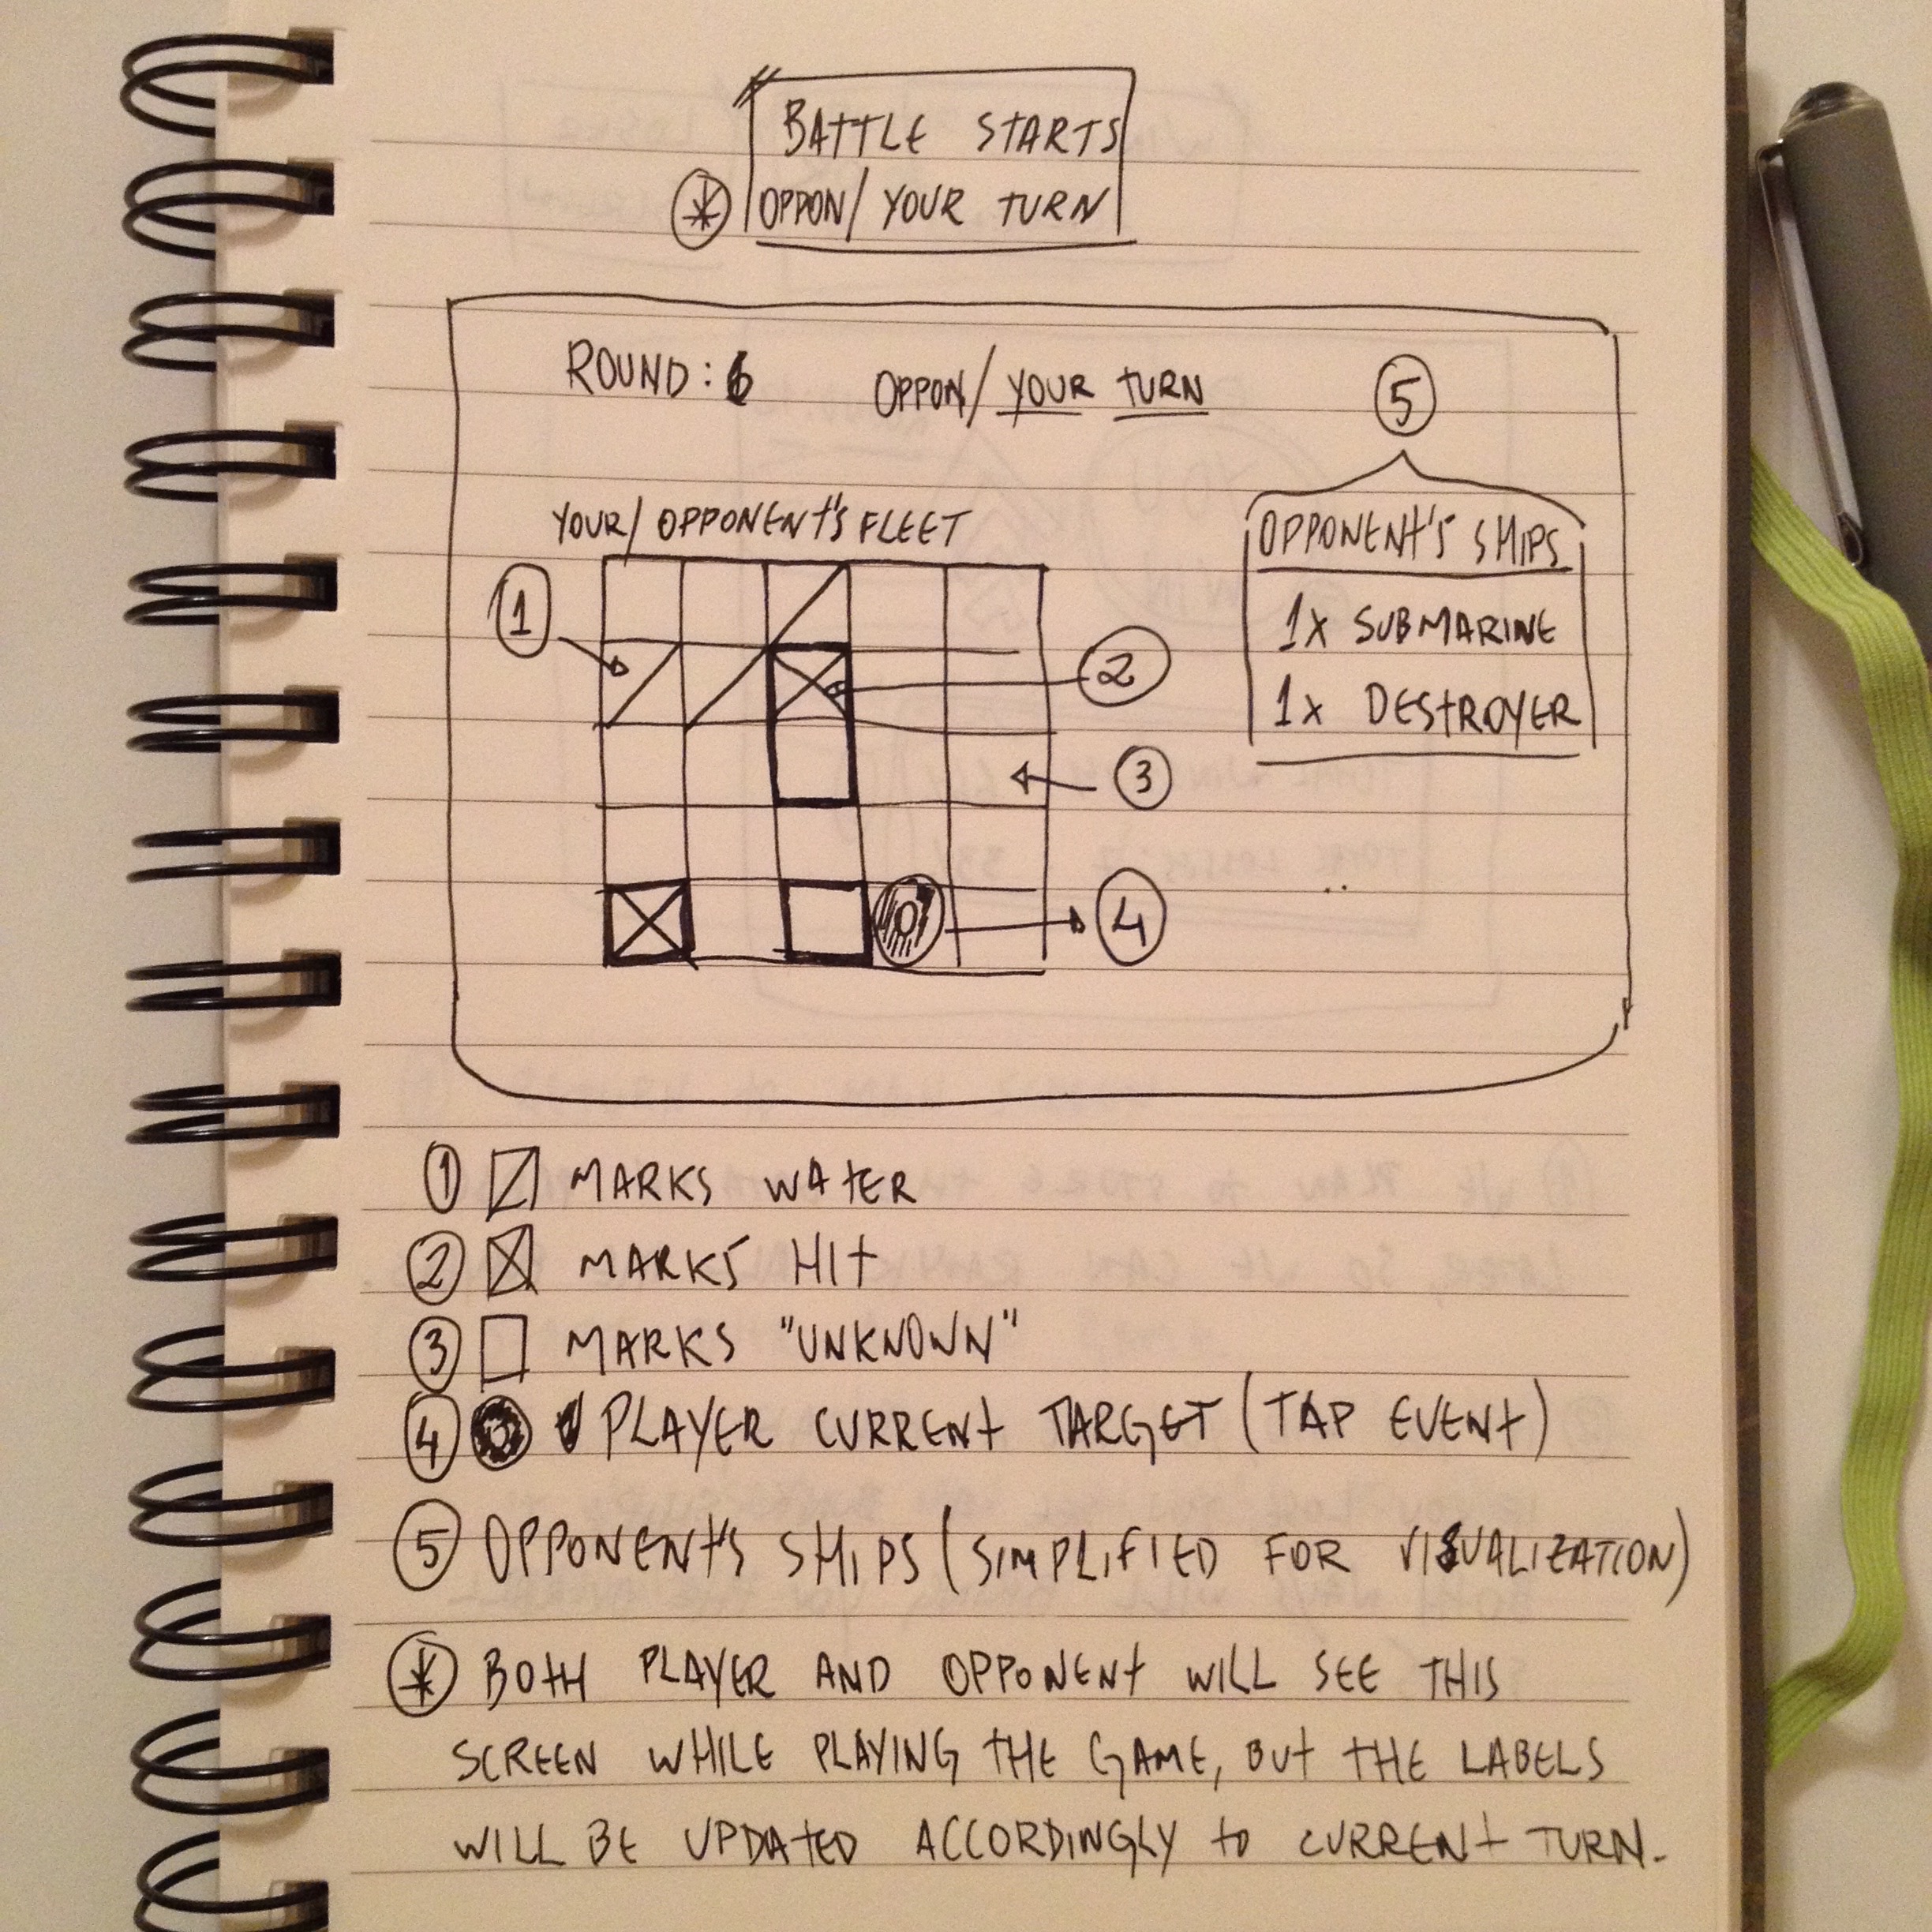 BATTLE STARTS
* OPPON/ YOUR TURN
ROUND: 6 OPPON/ YOUR TURN
5
YOUR/ OPPONENT'S FLEET
OPPONENT'S SHIPS
1X SUBMARINE
1X DESTROYER
1
2
3
4
1 MARKS WATER
2 MARKS HIT
3 MARKS "UNKNOWN"
4 PLAYER CURRENT TARGET (TAP EVENT)
5 OPPONENT'S SHIPS (SIMPLIFIED FOR VISUALIZATION)
* BOTH PLAYER AND OPPONENT WILL SEE THIS
SCREEN WHILE PLAYING THE GAME, BUT THE LABELS
WILL BE UPDATED ACCORDINGLY TO CURRENT TURN.